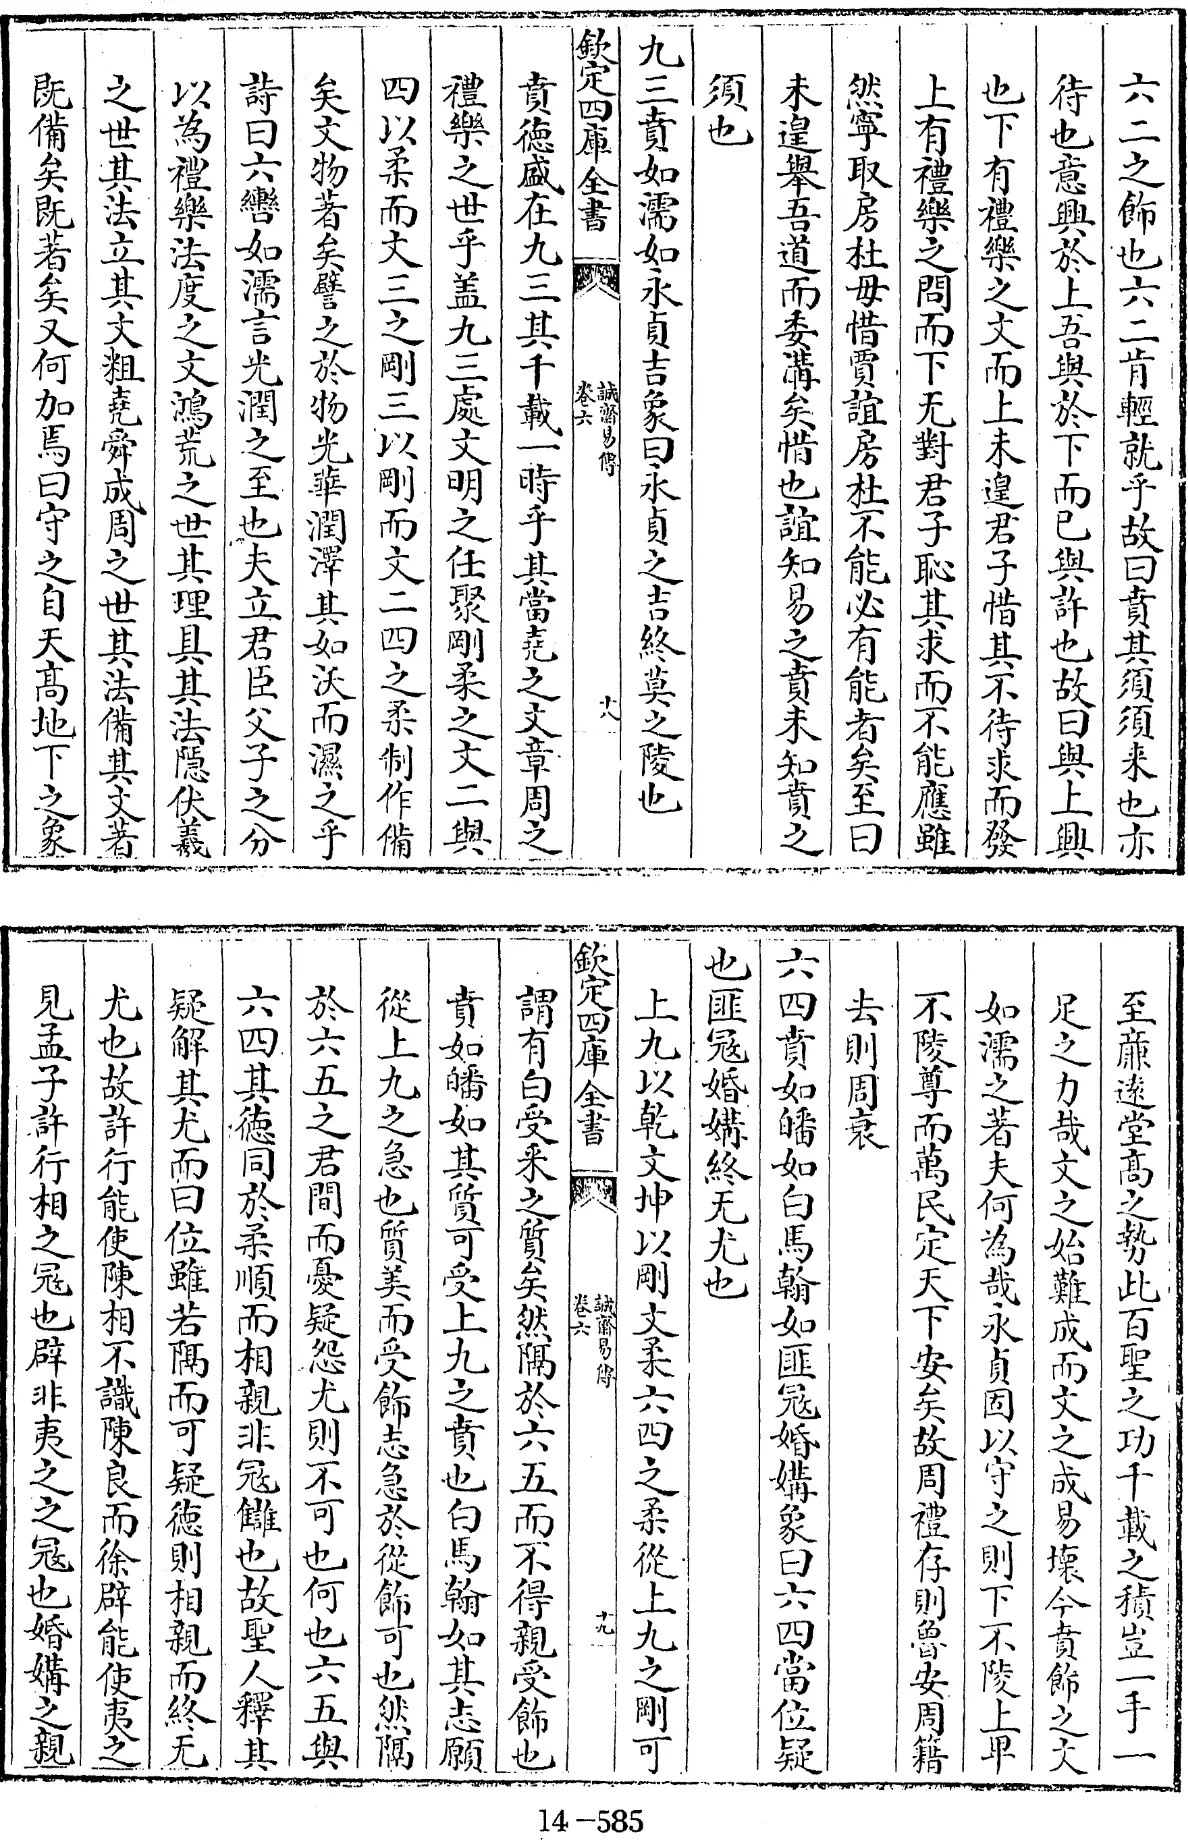 六二之飾也六二肯輕就乎故曰賁其須須来也亦
待也意興於上吾與於下而已與許也故曰與上興
也下有禮樂之文而上未遑君子惜其不待求而發
上有禮樂之問而下无對君子恥其求而不能應雖
然寧取房杜毋惜賈誼房杜不能必有能者矣至曰
未遑舉吾道而委溝矣惜也誼知易之賁未知賁之
須也
九三賁如濡如永貞吉象曰永貞之吉終莫之陵也
欽定四庫全書
誠齋易傳
卷六
十八
賁徳盛在九三其千載一時乎其當堯之文章周之
禮樂之世乎盖九三處文明之任聚剛柔之文二與
四以柔而文三之剛三以剛而文二四之柔制作備
矣文物著矣譬之於物光華潤澤其如沃而濕之乎
詩曰六轡如濡言光潤之至也夫立君臣父子之分
以為禮樂法度之文鴻荒之世其理具其法隠伏羲
之世其法立其文粗堯舜成周之世其法備其文著
既備矣既著矣又何加焉曰守之自天髙地下之象
至廉逺堂髙之勢此百聖之功千載之積豈一手一
足之力哉文之始難成而文之成易壊今賁飾之文
如濡之著夫何為哉永貞固以守之則下不陵上卑
不陵尊而萬民定天下安矣故周禮存則魯安周籍
去則周衰
六四賁如皤如白馬翰如匪冦婚媾象曰六四當位疑
也匪冦婚媾終无尤也
上九以乾文坤以剛文柔六四之柔從上九之剛可
欽定四庫全書
誠齋易傳
卷六
十九
謂有白受采之質矣然隔於六五而不得親受飾也
賁如皤如其質可受上九之賁也白馬翰如其志願
從上九之急也質美而受飾志急於從飾可也然隔
於六五之君間而憂疑怨尤則不可也何也六五與
六四其徳同於柔順而相親非冦讎也故聖人釋其
疑解其尤而曰位雖若隔而可疑徳則相親而終无
尤也故許行能使陳相不識陳良而徐辟能使夷之
見孟子許行相之冦也辟非夷之之冦也婚媾之親
14-585